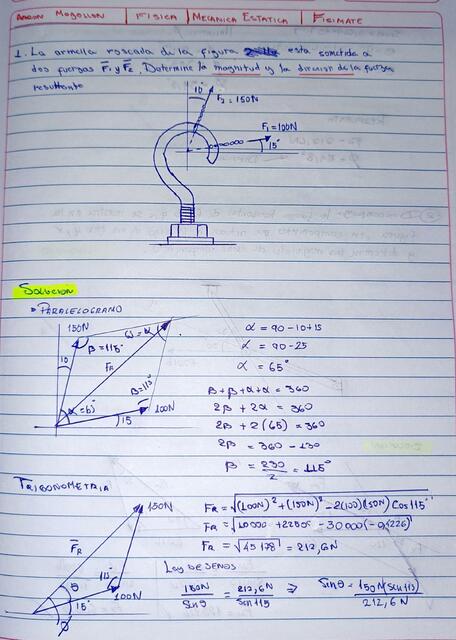 Aaron Mogollon | FISICA | MECANICA ESTATICA | FISIMATE
1. La armella roscada de la figura esta sometida a
dos fuerzas F₁ y F₂. Determine la magnitud y la direccion de la fuerza
resultante
10°
F₂=150N
F₁=100N
15°
SOLUCION
PARALELOGRAMO
150N
β=115°
10
FR
β=115°
α=65°
15
100N
α = 90-10+15
α = 90-25
α = 65°
β+β+α+α=360
2β + 2α = 360
2β + 2(65) = 360
2β = 360 - 130
β = 230/2 = 115°
TRIGONOMETRIA
150N
FR
115°
θ
15°
100N
Ø
FR = √(100N)²+(150N)²-2(100)(150N) Cos115°
FR = √10000+22500-30000(-0,4226)
FR = √45178 = 212,6N
Ley de senos
150N/Sinθ = 212,6N/Sin115 ⇒ Sinθ = 150N(Sin115)/212,6N